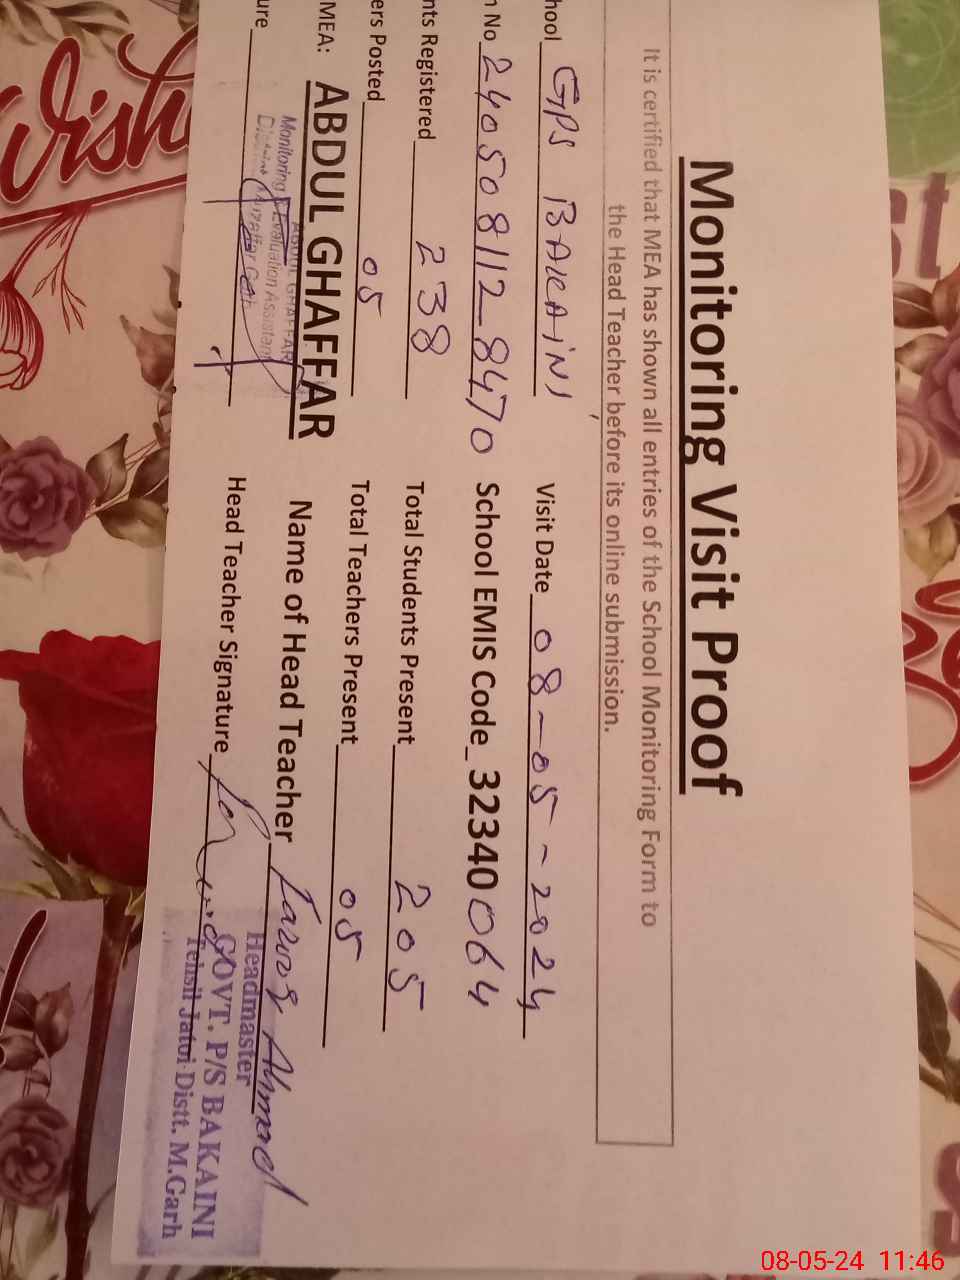 Monitoring Visit Proof
It is certified that MEA has shown all entries of the School Monitoring Form to
the Head Teacher before its online submission.
hool GPS BAKAINI Visit Date 08-05-2024
n No 240508112_8470 School EMIS Code_32340064
nts Registered 238 Total Students Present 205
ers Posted 05 Total Teachers Present 05
MEA: ABDUL GHAFFAR Name of Head Teacher Farooq Ahmad
ABDUL GHAFFAR
Monitoring & Evaluation Assistant
District Muzaffar Garh
ure Head Teacher Signature
Headmaster
GOVT. P/S BAKAINI
Tehsil Jatoi Distt. M.Garh
Wish
08-05-24 11:46